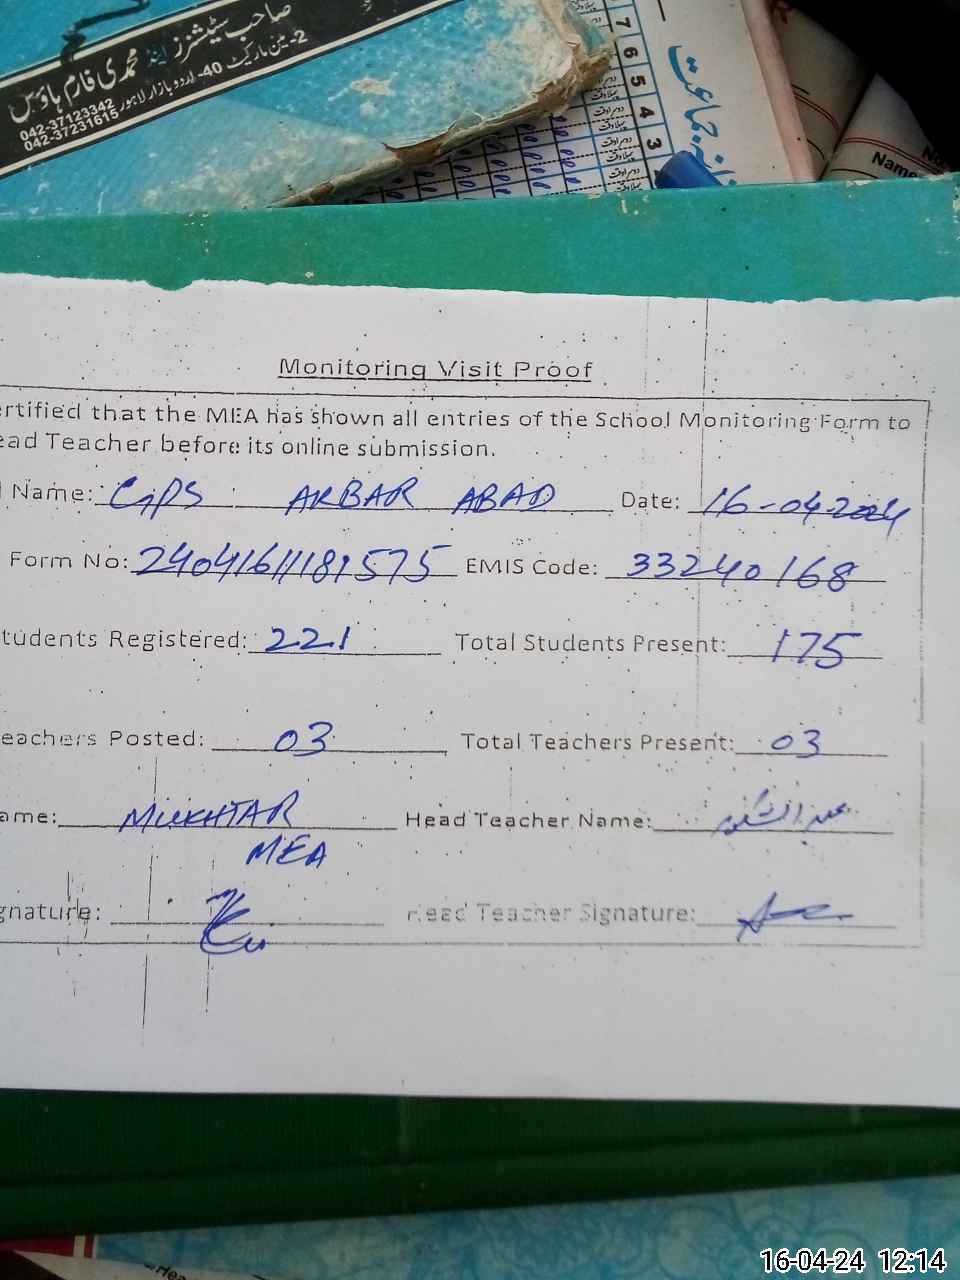 صاحب سٹیشنرز اینڈ محمدی فارم ہاؤس
2- مین مارکیٹ 40- اردو بازار لاہور
042-37123342
042-37231615
7
6
5
4
3
دوسرا وقت
پہلا وقت
جماعت
Name
Monitoring Visit Proof
ertified that the MEA has shown all entries of the School Monitoring Form to
ead Teacher before its online submission.
l Name: GPS AKBAR ABAD Date: 16-04-2024
Form No: 24041611181575 EMIS Code: 33240168
tudents Registered: 221 Total Students Present: 175
eachers Posted: 03 Total Teachers Present: 03
ame: MUKHTAR Head Teacher Name: عبدالشکور
MEA
gnature: Head Teacher Signature:
16-04-24 12:14